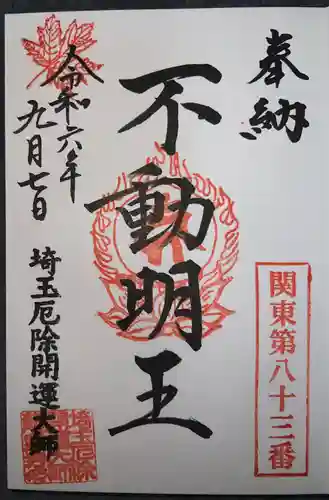 奉納
関東第八十三番
不動明王
令和六年
九月七日
埼玉厄除開運大師